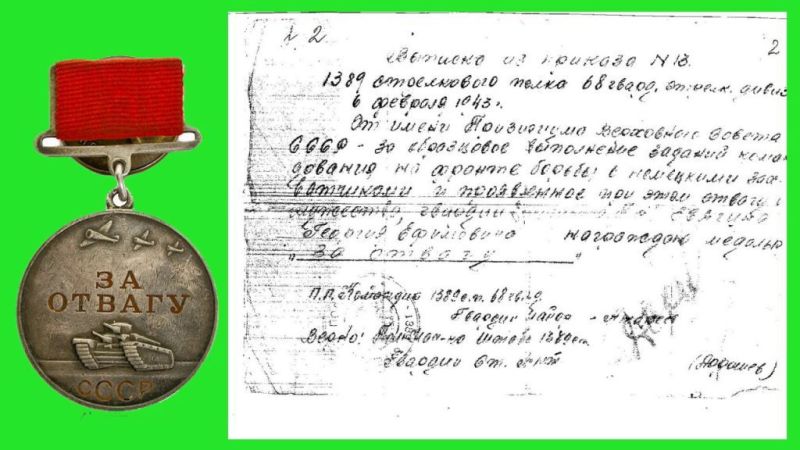 ЗА
ОТВАГУ
СССР
№ 2
2
Выписка из приказа N 13.
1389 стрелкового полка 68 гвард. стрелк. дивиз
6 февраля 1943 г.
От имени Президиума Верховного Совета
СССР - за образцовое выполнение заданий коман
дования на фронте борьбы с немецкими зах-
ватчиками и проявленное при этом отвагу и
мужество, гвардии
Георгия Ефимовича награждаю медалью
"За отвагу"
П.П. Командир 1389 с.п. 68 гв.с.д.
Гвардии майор
Верно: 1389 сп
Гвардии Ст. л-т